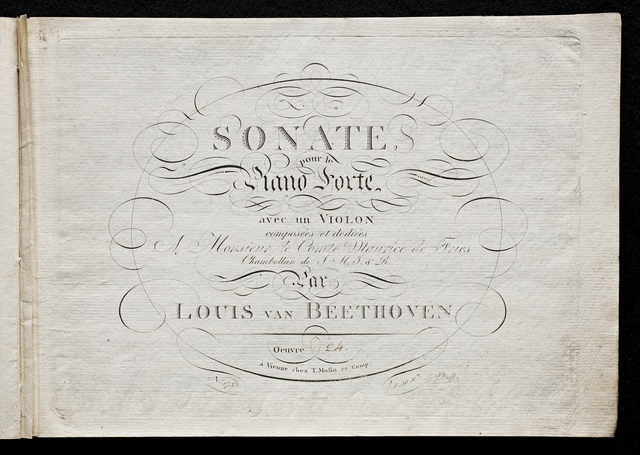 SONATES
pour le
Piano Forte,
avec un VIOLON
composées et dediées
A Monsieur le Comte Maurice de Fries
Chambellan de S. M. I. & R.
Par
LOUIS VAN BEETHOVEN
Oeuvre 24.
à Vienne chez T. Mollo et Comp.